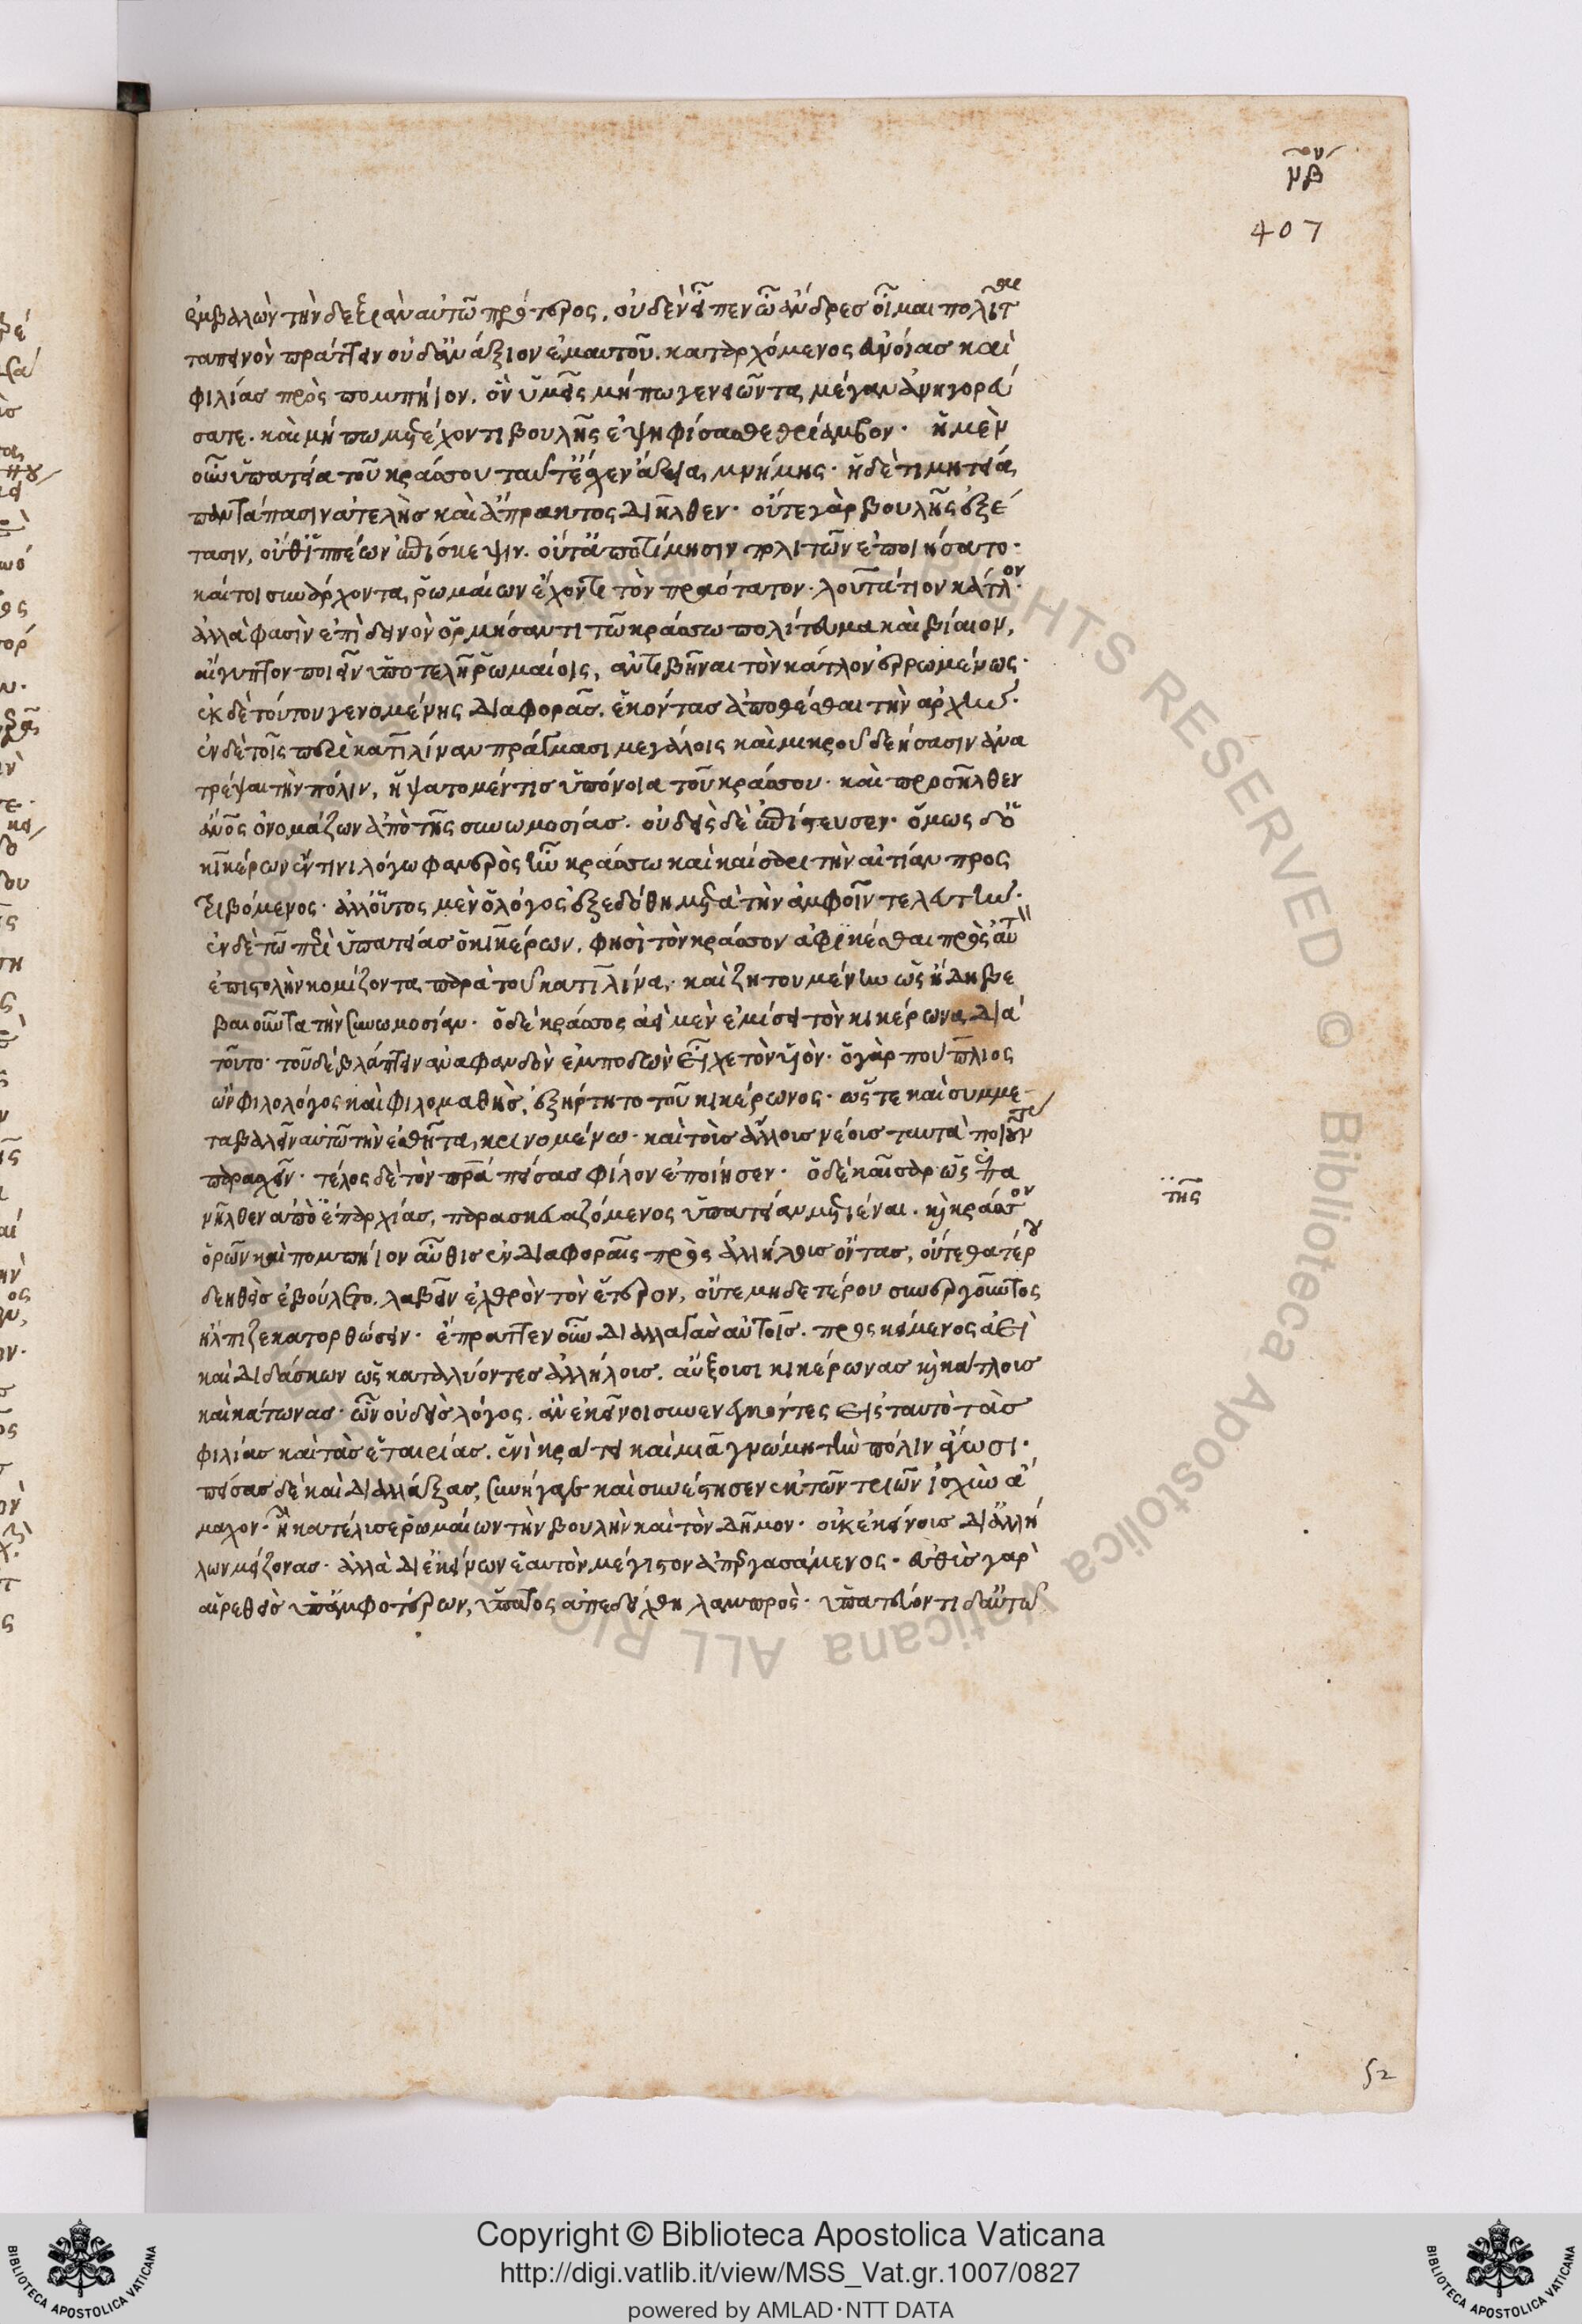 μβον
407
ἐμβαλὼν τὴν δεξιὰν αὐτῶ πρότερος, οὐδὲν εἶπεν ὦ ἄνδρες οἶμαι πολῖται
ταπεινὸν πράττειν οὐδ' ἀνάξιον ἐμαυτοῦ. καταρχόμενος εὐνοίας καὶ
φιλίας πρὸς πομπήιον, ὃν ὑμεῖς μήπω γενειῶντα, μέγαν ἀνηγορεύ
σατε. καὶ μήπω μετέχοντι βουλῆς ἐψηφίσασθε θρίαμβον. ἡ μὲν
οὖν ὑπατεία τοῦ κράσσου ταῦτ' ἔσχεν ἄξια μνήμης. ἡ δὲ τιμητεία
παντάπασιν ἀτελὴς καὶ ἄπρακτος διῆλθεν. οὔτε γὰρ βουλῆς ἐξέ
τασιν, οὔθ' ἱππέων ἐπίσκεψιν. οὔτ' ἀποτίμησιν πολιτῶν ἐποιήσατο.
καίτοι συνάρχοντα ῥωμαίων ἔχοντι τὸν πραότατον. λουτάτιον κάτλον.
ἀλλὰ φασὶν ἐπὶ δεινὸν ὁρμήσαντι τῶ κράσσω πολίτευμα καὶ βίαιον,
αἴγυπτον ποιεῖν ὑποτελῆ ῥωμαίοις, ἀντιβῆναι τὸν κάτλον ἐρρωμένως.
ἐκ δὲ τούτου γενομένης διαφορᾶς, ἑκόντας ἀποθέσθαι τὴν ἀρχήν.
ἐν δὲ τοῖς περὶ κατιλίναν πράγμασι μεγάλοις καὶ μικροῦ δεήσασιν ἀνα
τρέψαι τὴν πόλιν, ἥψατο μέν τις ὑπόνοια τοῦ κράσσου. καὶ προσῆλθεν
ἄνθρωπος ὀνομάζων ἀπὸ τῆς συνωμοσίας. οὐδεὶς δὲ ἐπίστευσεν. ὅμως δ' ὁ
κικέρων ἔν τινι λόγω φανερὸς ἦν κράσσω καὶ καίσαρι τὴν αἰτίαν προς
τριβόμενος. ἀλλ' οὗτος μὲν ὁ λόγος ἐξεδόθη μετὰ τὴν ἀμφοῖν τελευτήν.
ἐν δὲ τῶ περὶ ὑπατείας ὁ κικέρων, φησὶ τὸν κράσσον ἀφικέσθαι πρὸς αὐτὸν
ἐπιστολὴν κομίζοντα παρὰ τοῦ κατιλίνα, καὶ ζητουμένην ὡς ἤδη βε
βαιοῦντα τὴν συνωμοσίαν. ὁ δὲ κράσσος ἀεὶ μὲν ἐμίσει τὸν κικέρωνα διὰ
τοῦτο. τοῦ δὲ βλάπτειν ἀναφανδὸν ἐμποδὼν εἶχε τὸν υἱόν. ὁ γὰρ πούπλιος
ὢν φιλολόγος καὶ φιλομαθὴς, ἐξήρτητο τοῦ κικέρωνος. ὥστε καὶ συμμε
ταβαλεῖν αὐτῶ τὴν ἐσθῆτα κρινομένω. καὶ τοὺς ἄλλους νέους ταυτὰ ποιοῦντας
παρασχεῖν. τέλος δὲ τὸν πατέρα πείσας φίλον ἐποίησεν. ὁ δὲ καῖσαρ ὡς ἐπα
νῆλθεν ἀπὸ ἐπαρχίας, παρασκευαζόμενος ὑπατείαν μετιέναι. καὶ κράσσον
ὁρῶν καὶ πομπήιον αὖθις ἐν διαφοραῖς πρὸς ἀλλήλους ὄντας, οὔτε θατέρου
δεηθεὶς ἐβούλετο λαβεῖν ἐχθρὸν τὸν ἕτερον, οὔτε μηδετέρου συνεργοῦντος
ἤλπιζε κατορθώσειν. ἔπραττεν οὖν διαλλαγὰς αὐτοῖς. προσκείμενος ἀεὶ
καὶ διδάσκων ὡς καταλύοντες ἀλλήλους, αὔξουσι κικέρωνας καὶ κάτλους
καὶ κάτωνας. ὧν οὐδεὶς λόγος, ἂν ἐκεῖνοι συνενεγκόντες εἰς ταυτὸ τὰς
φιλίας καὶ τὰς ἑταιρίας, ἑνὶ κράτει καὶ μιᾶ γνώμη τὴν πόλιν ἄγωσι.
πείσας δὲ καὶ διαλλάξας, συνήγαγε καὶ συνέστησεν ἐκ τῶν τριῶν ἰσχὺν ἄ
μαχον. ἧ κατέλυσε ῥωμαίων τὴν βουλὴν καὶ τὸν δῆμον. οὐκ ἐκείνους δι' ἀλλή
λων μείζονας. ἀλλὰ δι' ἐκείνων ἑαυτὸν μέγιστον ἀπεργασάμενος. εὐθὺς γὰρ
αἱρεθεὶς ὑπ' ἀμφοτέρων, ὕπατος ἀπεδείχθη λαμπρὸς. ὑπατεύοντι δ' αὐτῶ
τῆς
52
Copyright © Biblioteca Apostolica Vaticana
http://digi.vatlib.it/view/MSS_Vat.gr.1007/0827
powered by AMLAD·NTT DATA